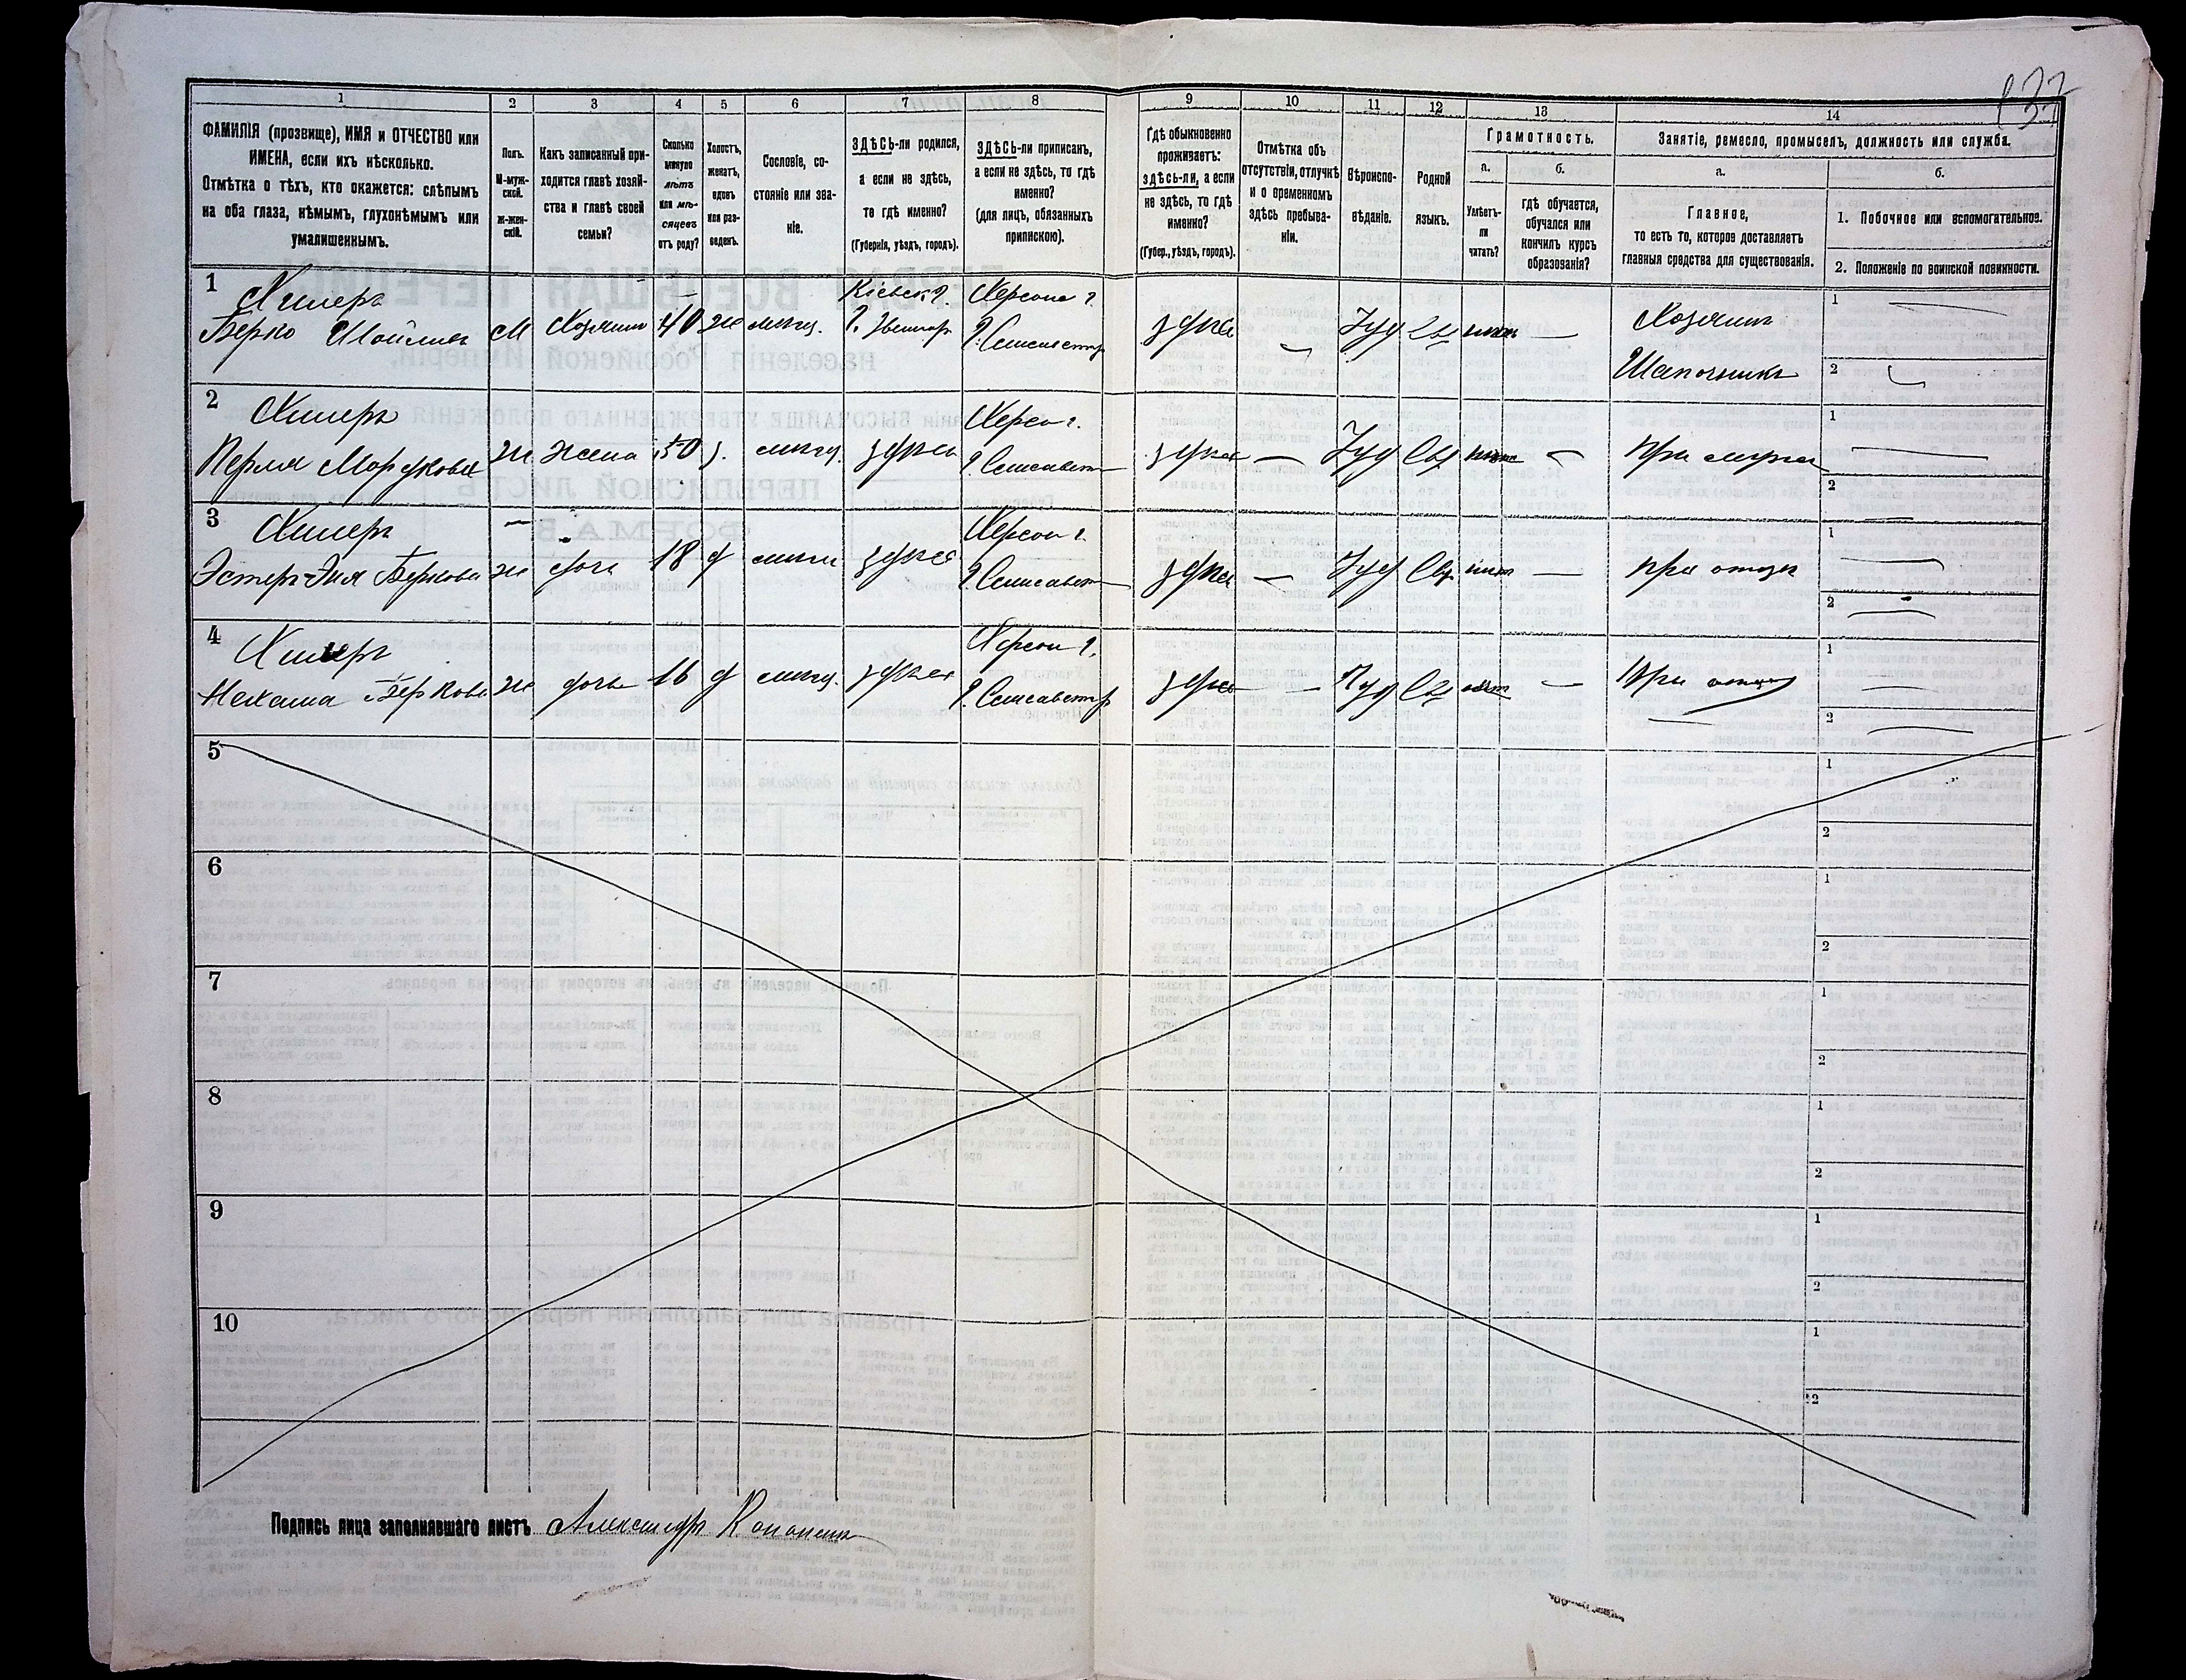 137
1 2 3 4 5 6 7 8 9 10 11 12 13 14
ФАМИЛІЯ (прозвище), ИМЯ и ОТЧЕСТВО или
ИМЕНА, если ихъ нѣсколько.
Отмѣтка о тѣхъ, кто окажется: слѣпымъ
на оба глаза, нѣмымъ, глухонѣмымъ или
умалишеннымъ.
Полъ.
М-муж-
ской.
Ж-жен-
скій.
Какъ записанный при-
ходится главѣ хозяй-
ства и главѣ своей
семьи?
Сколько
минуло
лѣтъ
или мѣ-
сяцевъ
отъ роду?
Холостъ,
женатъ,
вдовъ
или раз-
веденъ.
Сословіе, со-
стояніе или зва-
ніе.
ЗДѢСЬ-ли родился,
а если не здѣсь,
то гдѣ именно?
(Губернія, уѣздъ, городъ).
ЗДѢСЬ-ли приписанъ,
а если не здѣсь, то гдѣ
именно?
(для лицъ, обязанныхъ
припискою).
Гдѣ обыкновенно
проживаетъ:
здѣсь-ли, а если
не здѣсь, то гдѣ
именно?
(Губер., уѣздъ, городъ).
Отмѣтка объ
отсутствіи, отлучкѣ
и о временномъ
здѣсь пребыва-
ніи.
Вѣроиспо-
вѣданіе.
Родной
языкъ.
Грамотность.
а. б.
Умѣетъ-
ли
читать?
гдѣ обучается,
обучался или
кончилъ курсъ
образованія?
Занятіе, ремесло, промыселъ, должность или служба.
а. б.
Главное,
то есть то, которое доставляетъ
главныя средства для существованія.
1. Побочное или вспомогательное.
2. Положеніе по воинской повинности.
1 Хилеръ Кіевск г. Херсонс г. Хозяинъ 1
Берко М Хозяинъ 40 ж мѣщ. г. Звенигор. г. Елисаветгр здѣсь — Іуд Евр —
Шапочникъ 2
2 Хилеръ Херсо г. 1
Перля Мордкова Ж Жена 50 з. мѣщ. здѣсь г. Елисавет здѣсь — Іуд Евр — При мужѣ
2
3 Хилеръ Херсон г. 1
Эстеръ Эня Беркова ж дочь 18 д мѣщ здѣсь г. Елисавет здѣсь — Іуд Евр нѣт — при отцѣ
2
4 Хилеръ Херсон г. 1
Нехама Беркова ж дочь 16 д мѣщ. здѣсь г. Елисаветгр здѣсь — Іуд Евр нѣт — При отцѣ
2
5 1
2
6 1
2
7 1
2
8 1
2
9 1
2
10 1
2
Подпись лица заполнявшаго листъ Александръ